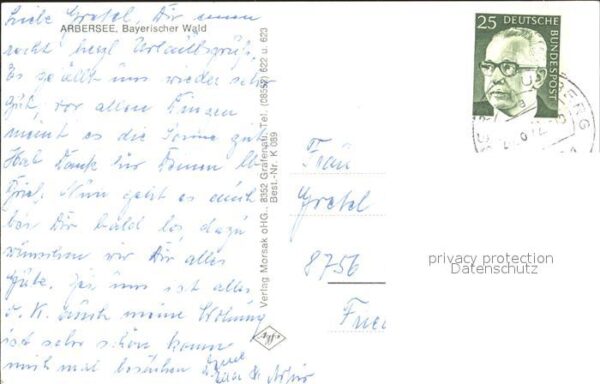 Liebe Gretel, Dir einen
ARBERSEE, Bayerischer Wald
recht herzl. Urlaubsgrüße.
Es gefällt uns wieder sehr
gut, vor allem
meint es die Sonne gut.
Hab Dank für Deinen lb.
Brief. Nun geht es auch
bei Dir bald los, dazu
wünschen wir Dir alles
Gute. Bei uns ist alles
o. K. Auch meine Wohnung
ist sehr schön komm
mich mal besuchen
Verlag Morsak oHG., 8352 Grafenau, Tel. (08552) 622 u. 623
Best.-Nr. K 089
Agfa
25
DEUTSCHE
BUNDESPOST
Frau
Gretel
8756
privacy protection
Datenschutz